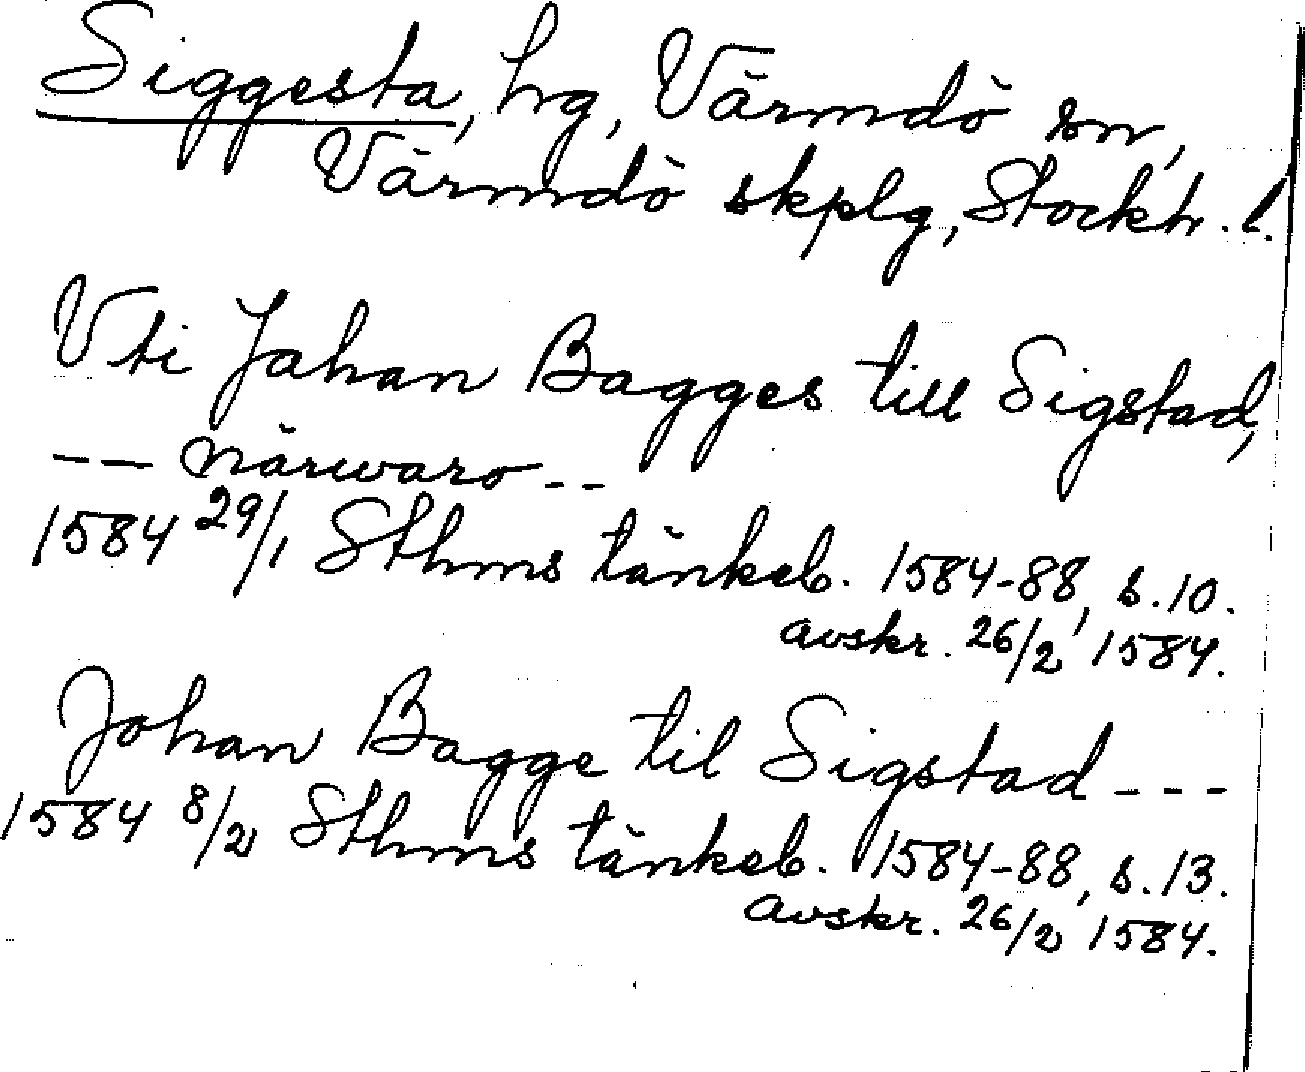 Siggesta, hg, Värmdö sn,
Värmdö skplg, Stockh. l.
Vti Jahan Bagges till Sigstad,
-- närwaro --
1584 29/1 Sthms tänkeb. 1584-88, s. 10.
avskr. 26/2 1584.
Johan Bagge til Sigstad ---
1584 8/2 Sthms tänkeb. 1584-88, s. 13.
avskr. 26/2 1584.